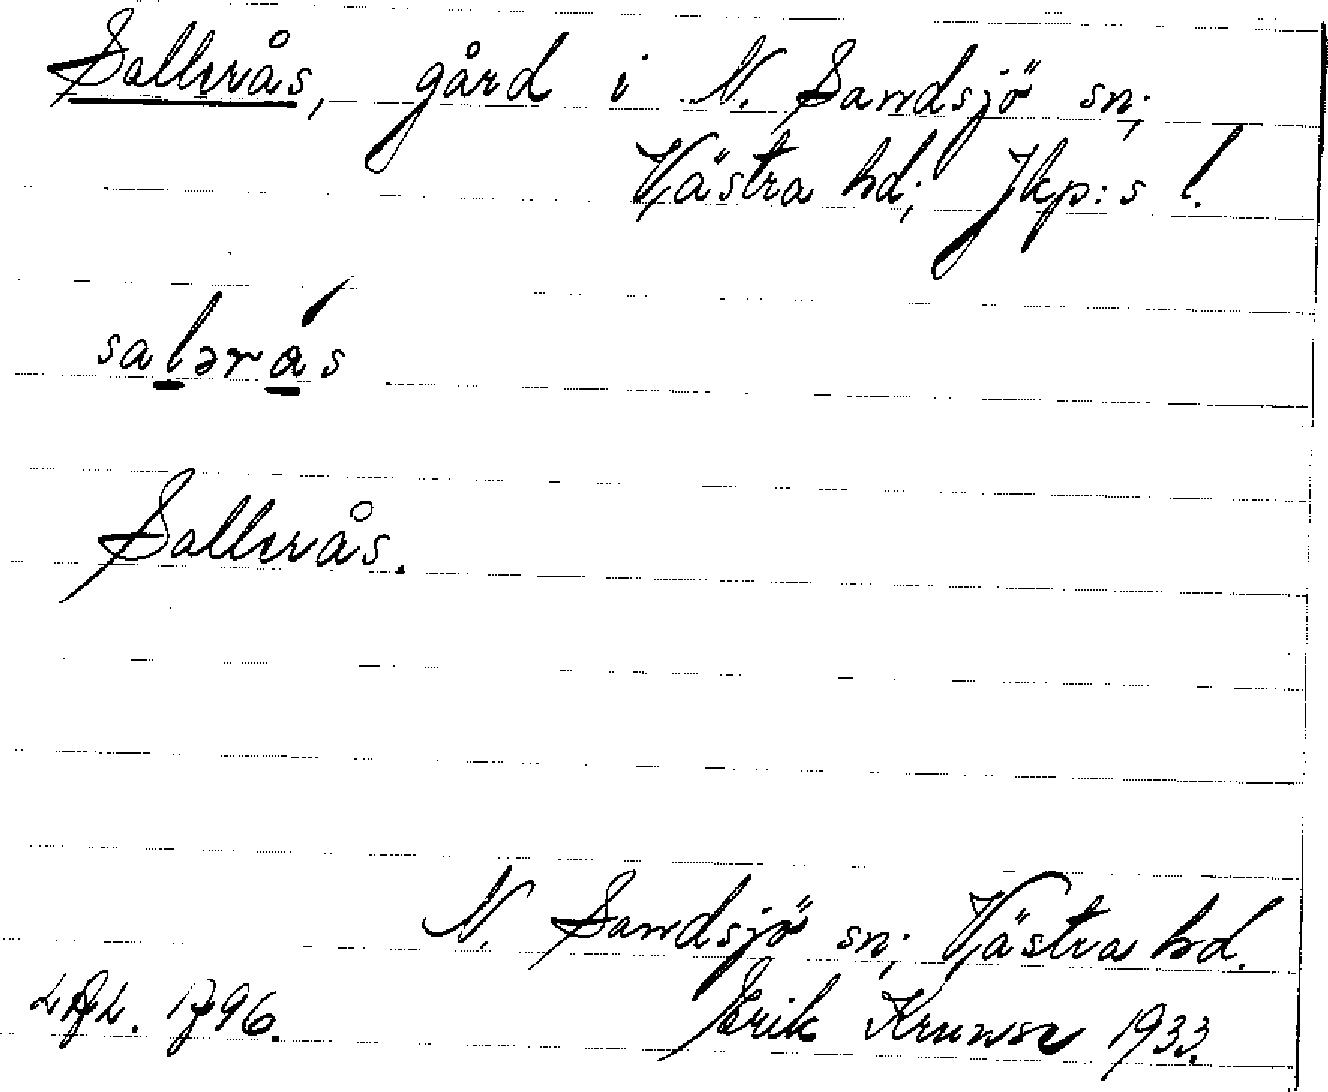 Sallerås, gård i N. Sandsjö sn;
Västra hd; Jkp:s l.
salərás
Sallerås.
N. Sandsjö sn; Västra hd.
1796. Erik Kruuse 1933.